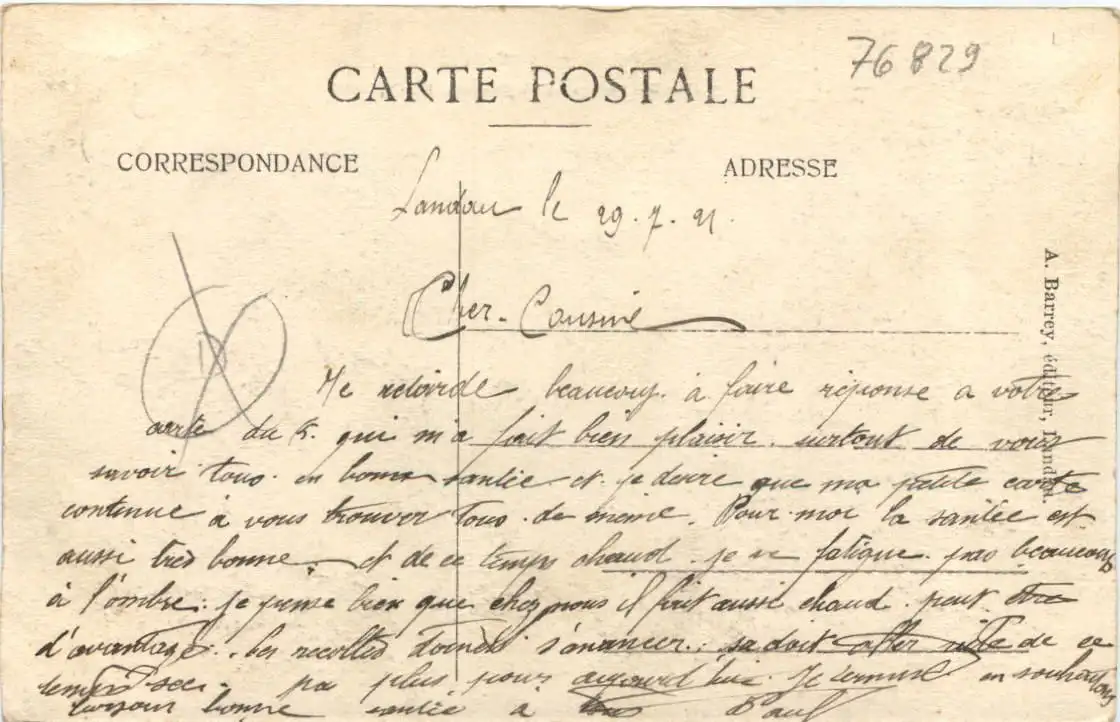 76829
CARTE POSTALE
CORRESPONDANCE
ADRESSE
Landau le 29.7.21.
Cher. Cousine
Je retarde beaucoup. à faire réponse a votre
carte du 5. qui m'a fait bien plaisir. surtout de vous
savoir tous. en bonne santée et je desire que ma petite carte
continue à vous trouver tous. de même. Pour moi la santée est
aussi très bonne. et de ce temps chaud. je ne fatigue. pas beaucoup
à l'ombre. je pense bien que chez nous il fait aussi chaud. peut être
d'avantage. les recoltes doivent s'avancer. sa doit aller vite de ce
temps sec. pa plus pour aujourd'hui. Je termine en souhaitant
toujour bonne santée à tous Paul
A. Barrey, éditeur, Landau.